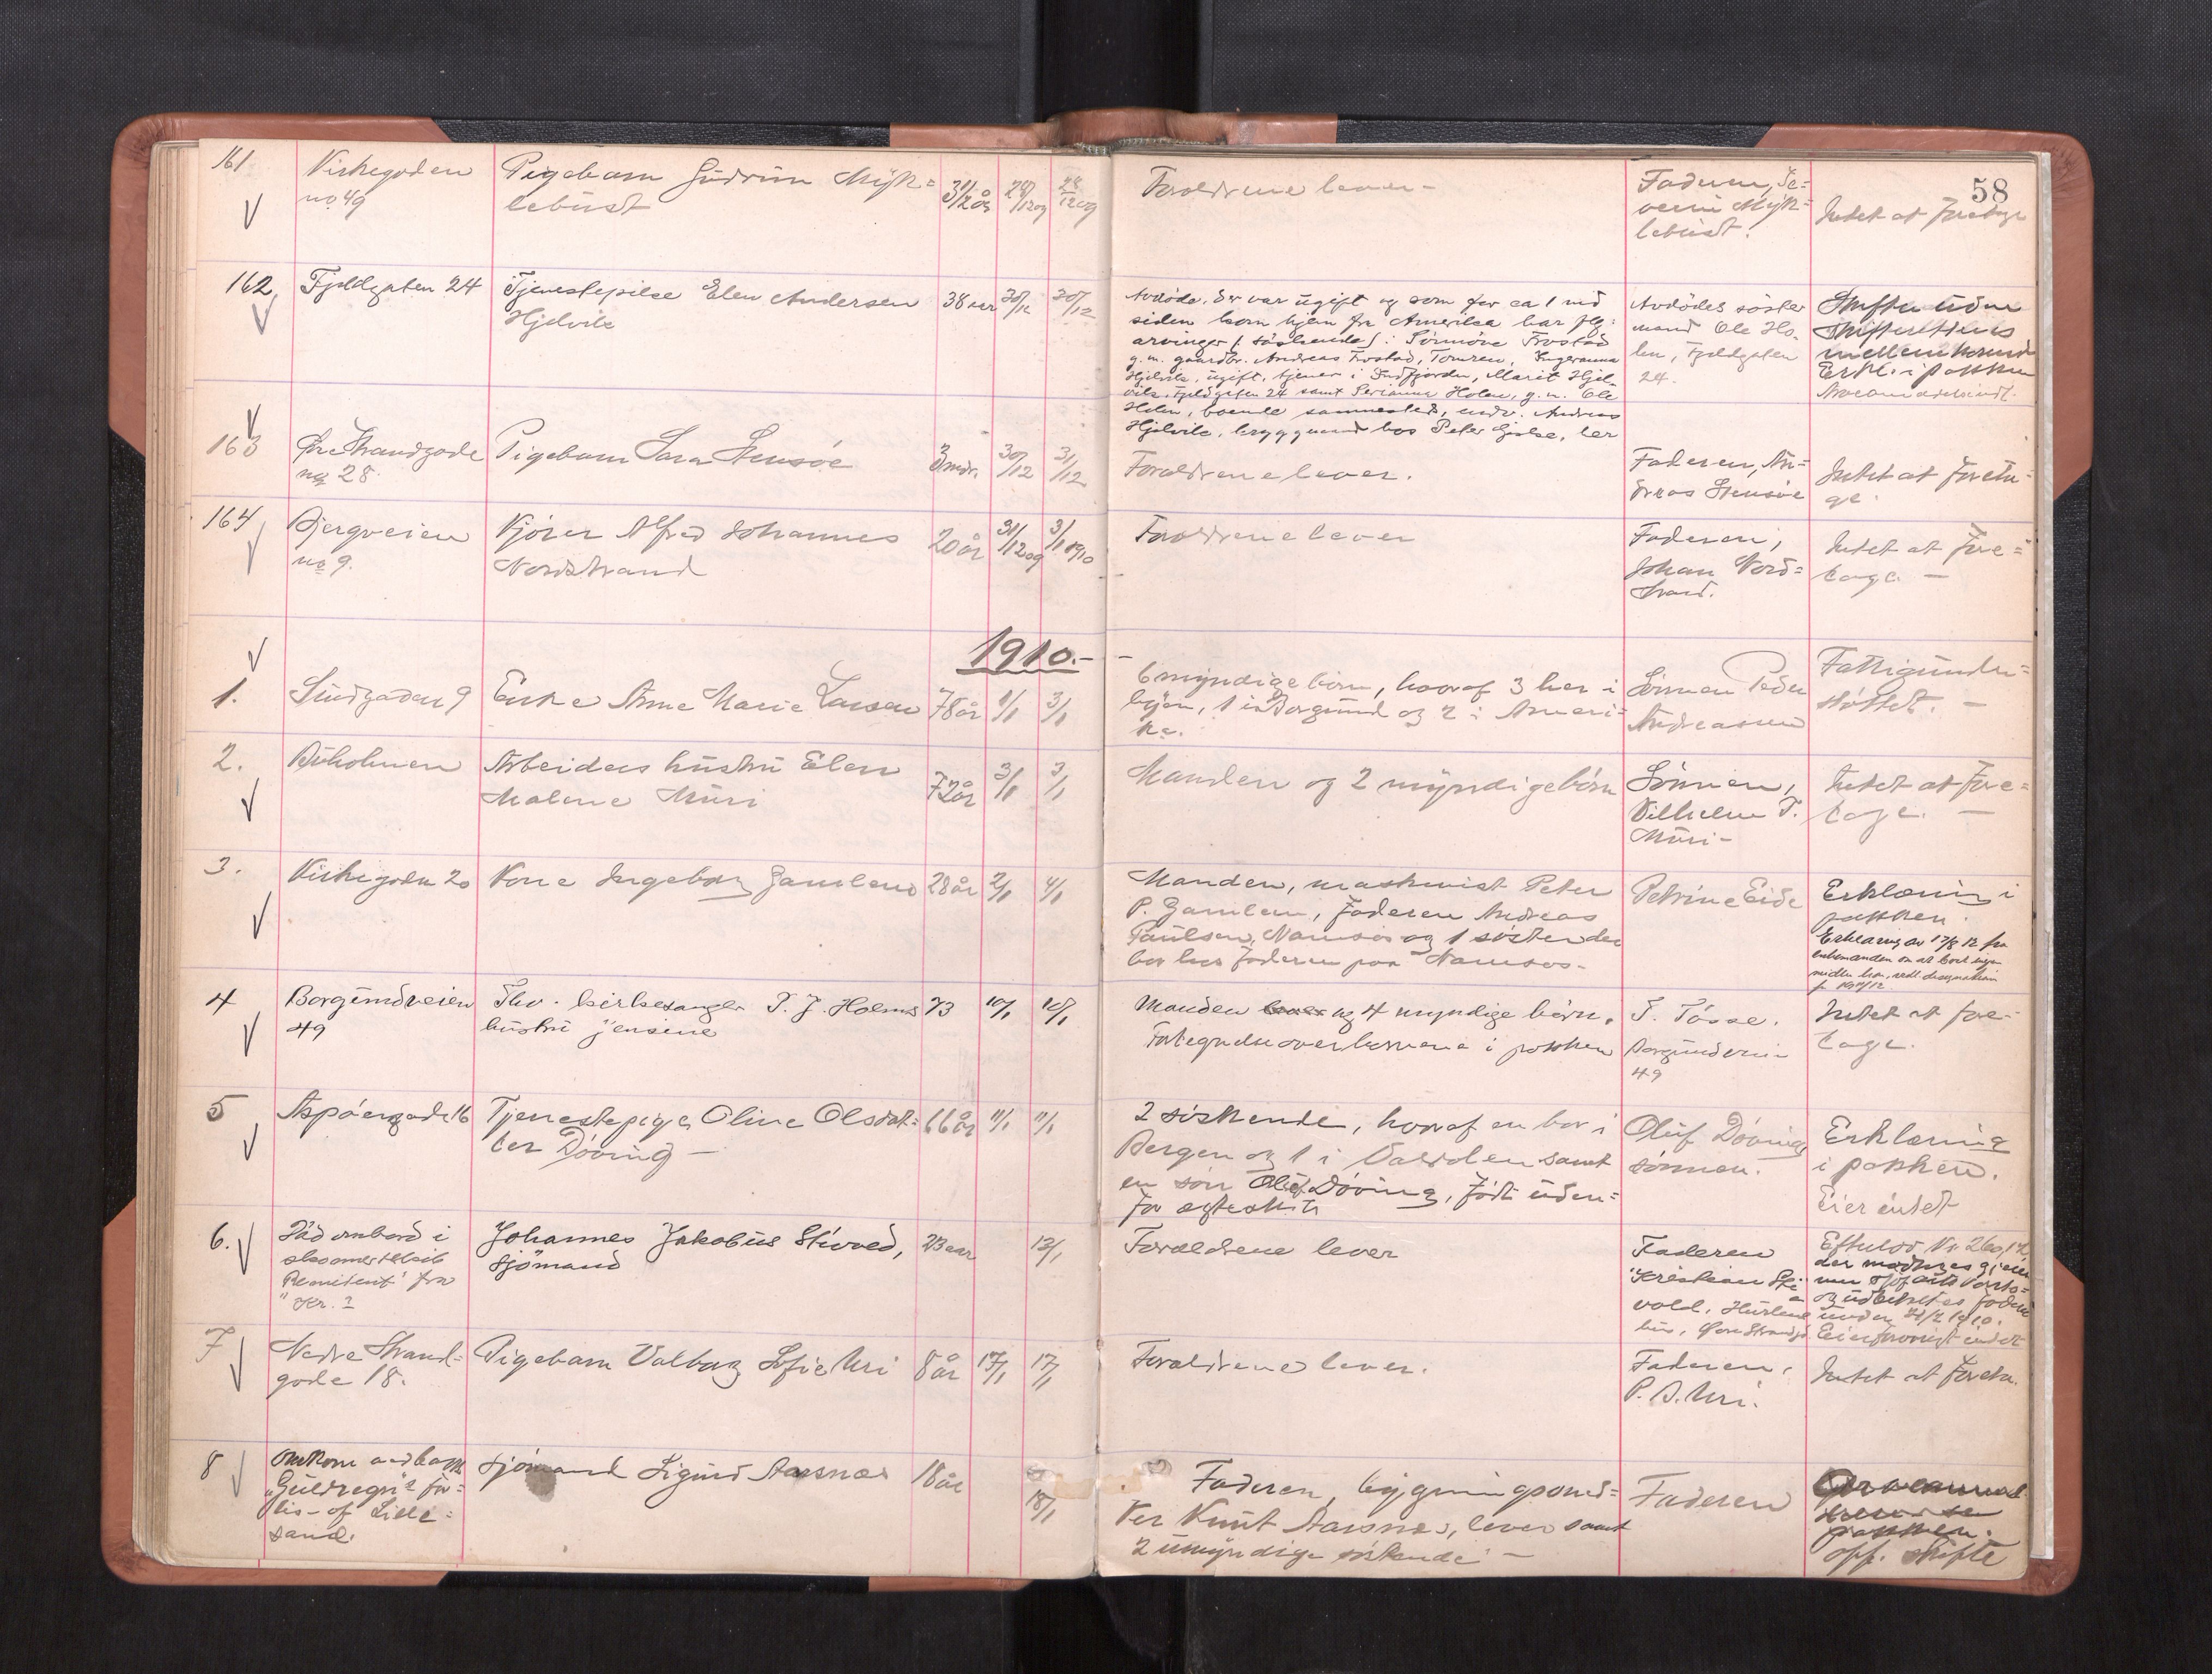 58
161
Kirkegaden
no 49
Pigebarn Gudrun Myk=
lebust
3 1/2 år
28/12 09
Forældrene lever -
Faderen, Se=
verin Myk=
lebust.
Intet at foretage
162
Fjeldgaten 24
Tjenestepike Elen Andersen
Hjelvik
38 aar
30/12
30/12
Avdöde, der var ugift og som for ca 1 md
siden kom hjem fra Amerika har flg.
arvinger (söskende):
g. m. gaardbr. Andreas Frostad, Tomren, Ingeranna
Hjelvik, ugift, tjener i Indfjorden, Marit Hjel-
vik, Fjeldgaten 24 samt Serianna Holen, g. m. Ole
Holen, boende sammesteds, endv. Andreas
Hjelvik, bryggmand hos Peter her
Avdödes söster
mand Ole Ho-
len, Fjeldgaten
24.
Skifter uden
skifterettens
mellemkomst
Erkl. i pakken
163
Øvre Strandgade
no 28.
Pigebarn Sara Stensöe
3 mdr.
30/12
31/12
Forældrene lever.
Faderen, An=
dreas Stensöe
Intet at foreta=
ge.
164
Bjergveien
no 9.
Kjörer Alfred Johannes
Nordstrand
20 år
31/12 09
3/1 1910
Forældrene lever
Faderen,
Johan Nord=
strand.
Intet at fore=
tage. -
1910.-
1.
Sundgaden 9
Enke Anne Marie Larsen
78 år
1/1
3/1
6 myndige börn, hvoraf 3 her i
byen, 1 i Borgund og 2 i Ameri=
ka.
Sönnen Peder
Andreassen
Fattigunder=
støttet. -
2.
Buholmen
Arbeiders hustru Elen
Malene Muri
72 år
3/1
3/1
Manden og 2 myndige börn
Sönnen,
Vilhelm T.
Muri -
Intet at fore=
tage. -
3.
Kirkegaden 20
Kone Ingeborg Gamlem
28 år
2/1
4/1
Manden, maskinist Peter
P. Gamlem, faderen Andreas
Paulsen, Namsos og 1 söster der
bor hos faderen paa Namsos -
Petrine Eide
Erklæring i
pakken.
Erklæring av 17/8 12 fra
enkemanden om at boet ingen
midler har,
4
Borgundveien
49
Fhv. kirkesanger P. J. Holms
hustru Jensine
73
10/1
10/1
Manden lever og 4 myndige börn.
Fortegnelse over børnene i pakken
T. Tösse.
Borgundveien
49
Intet at fore-
tage.
5
Aspöengade 16
Tjenestepige Oline Olsdat=
ter Döving -
66 år
11/1
11/1
2 söskende, hvoraf en bor i
Bergen og 1 i samt
en sön Oluf Döving, födt uden=
for ægteskab
Oluf Döving
sönnen.
Erklæring
i pakken.
Eier intet
6.
Död ombord i
Penitent" fra
"Kr. ?
Johannes Jakobus Stivold,
Sjömand
23 aar
13/1
Forældrene lever
Faderen
Kristian Sti-
vold,
Efterlod Kr. 260,12
der modtages gjen-
og udbetales faderen
Eier forövrigt intet
7
Nedre Strand=
gade 18.
Pigebarn Valborg Sofie Uri
8 år
17/1
17/1
Forældrene lever.
Faderen,
P. A. Uri.
Intet at foreta.
8
Omkom ved bark
"Guldregn"s for=
lis - af Lille=
sand.
Sjömand Sigurd Aarsnes
18 år
18/1
Faderen, bygningssned=
ker Knut Aarsnes, lever samt
2 umyndige söskende -
Faderen
pakken.
off. skifte